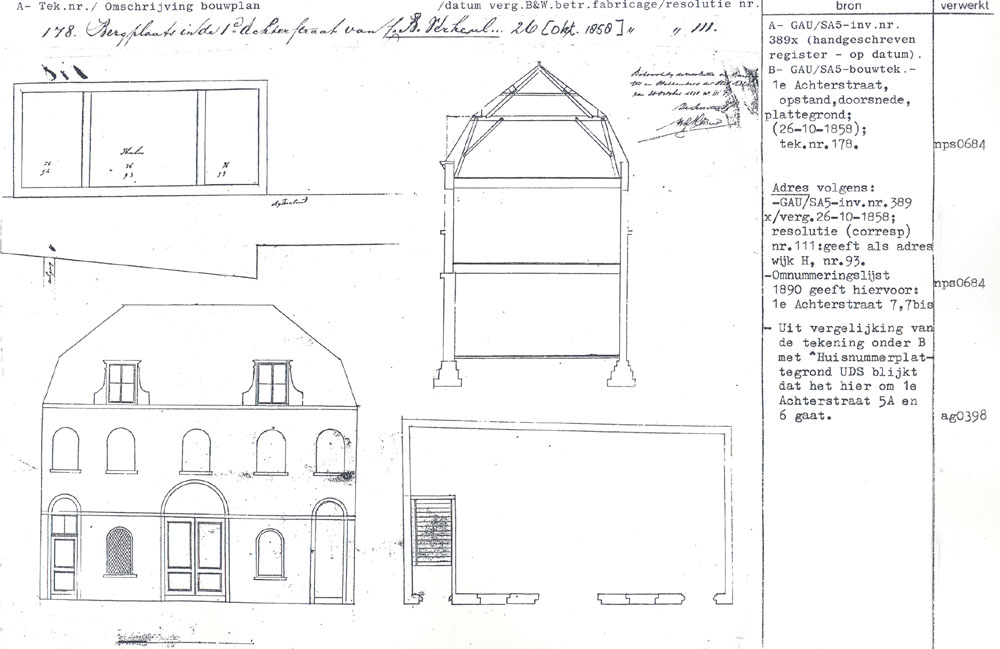 A- Tek.nr./ Omschrijving bouwplan /datum verg.B&W.betr.fabricage/resolutie nr.
bron
verwerkt
178. Bergplaats in de 1e Achterstraat van B. Verheul... 26 [Okt. 1858] " " 111.
A- GAU/SA5-inv.nr.
389x (handgeschreven
register - op datum).
B- GAU/SA5-bouwtek.-
1e Achterstraat,
opstand,doorsnede,
plattegrond;
(26-10-1858);
tek.nr.178.
nps0684
Adres volgens:
-GAU/SA5-inv.nr.389
x/verg.26-10-1858;
resolutie (corresp)
nr.111:geeft als adres
wijk H, nr.93.
-Omnummeringslijst
1890 geeft hiervoor:
1e Achterstraat 7,7bis
nps0684
- Uit vergelijking van
de tekening onder B
met "Huisnummerplat-
tegrond UDS blijkt
dat het hier om 1e
Achterstraat 5A en
6 gaat.
ag0398